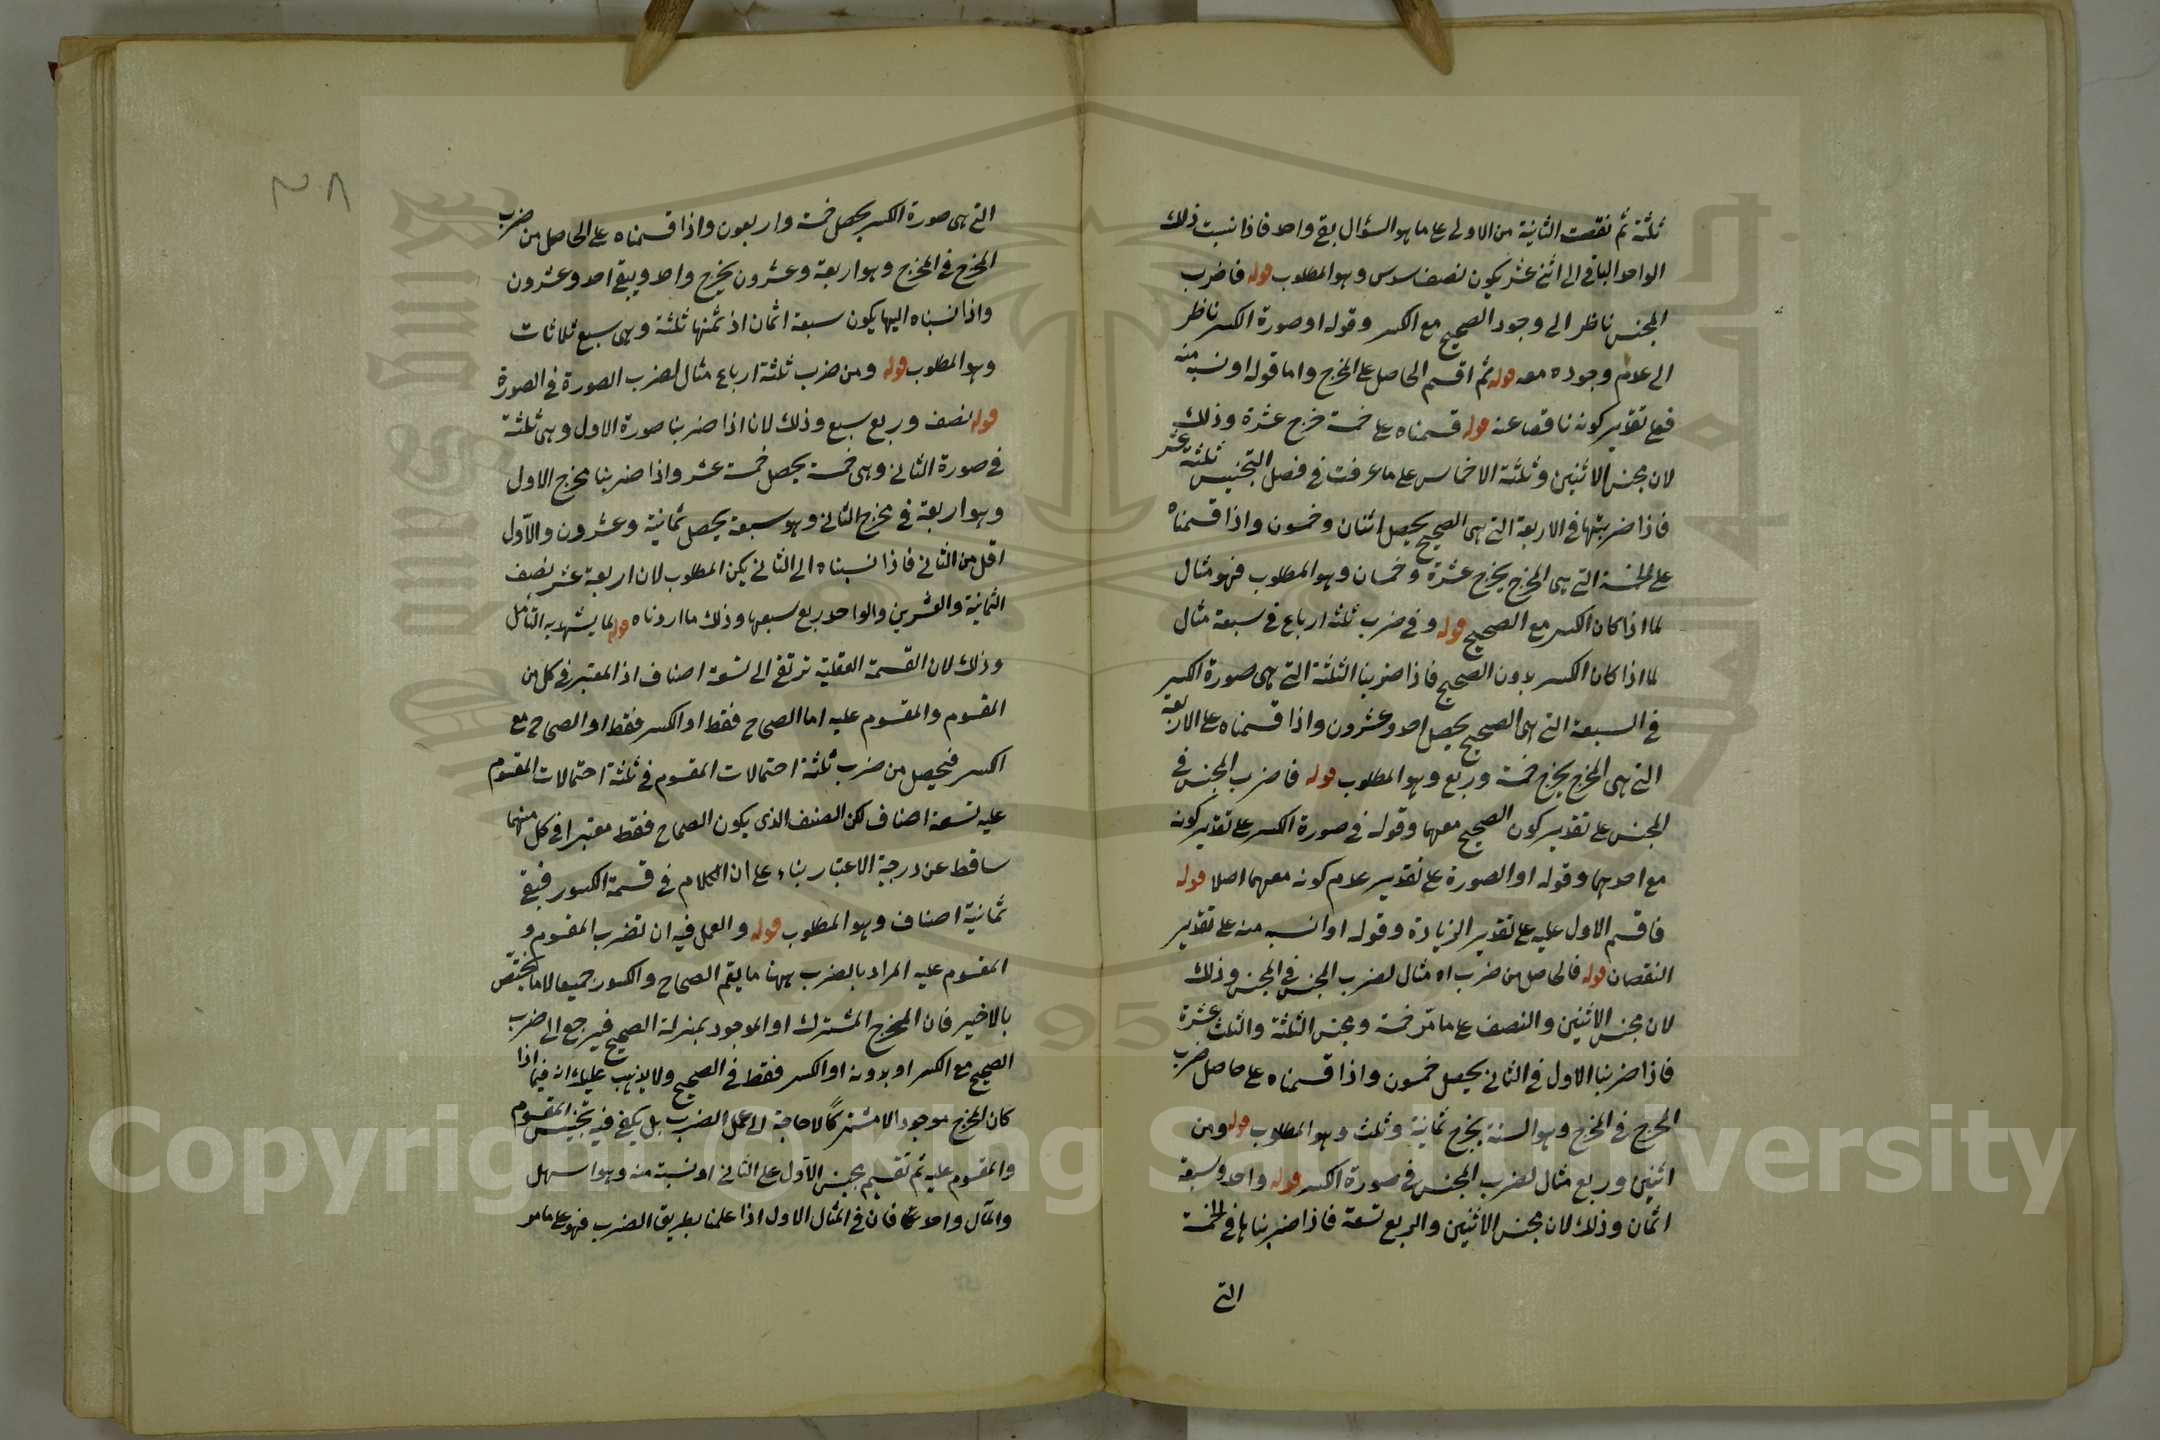 ثلثة ثم نقصت الثانية من الاولى على ما هو السؤال بقى واحد فاذا نسبت ذلك
الواحد الباقى الى اثنى عشر يكون نصف سدس وهو المطلوب قوله فاضرب
المجنس ناظر الى وجود الصحيح مع الكسر وقوله او صورة الكسر ناظر
الى عدم وجوده معه قوله ثم اقسم الحاصل على المخرج واما قوله او نسبه منه
فعلى تقدير كونه ناقصا عنه قوله قسمناه على خمسة خرج عشرة وذلك
لان مجنس الاثنين وثلثة الاخماس على ما عرفت فى فصل التجنيس ثلثة عشر
فاذا ضربتها فى الاربعة التى هى الصحيح يحصل اثنان وخمسون واذا قسمناه
على الخمسة التى هى المخرج يخرج عشرة وخمسان وهو المطلوب فهو مثال
لما اذا كان الكسر مع الصحيح قوله وفى ضرب ثلثة ارباع فى سبعة مثال
لما اذا كان الكسر بدون الصحيح فاذا ضربنا الثلثة التى هى صورة الكسر
فى السبعة التى هى الصحيح يحصل احد وعشرون واذا قسمناه على الاربعة
التى هى المخرج يخرج خمسة وربع وهو المطلوب قوله فاضرب المجنس فى
المجنس على تقدير كون الصحيح معهما وقوله فى صورة الكسر على تقدير كونه
مع احدهما وقوله او الصورة على تقدير عدم كونه معهما اصلا قوله
فاقسم الاول عليه على تقدير الزيادة وقوله او انسبه منه على تقدير
النقصان قوله فالحاصل من ضرب اه مثال لضرب المجنس فى المجنس وذلك
لان مجنس الاثنين والنصف على ما مر خمسة ومجنس الثلثة والثلث عشرة
فاذا ضربنا الاول فى الثانى يحصل خمسون واذا قسمناه على حاصل ضرب
المخرج فى المخرج وهو الستة يخرج ثمانية وثلث وهو المطلوب قوله ومن
اثنين وربع مثال لضرب المجنس فى صورة الكسر قوله واحد وسبعة
اثمان وذلك لان مجنس الاثنين والربع تسعة فاذا ضربناها فى الخمسة
التى
٢٨
التى هى صورة الكسر يحصل خمسة واربعون واذا قسمناه على الحاصل من ضرب
المخرج فى المخرج وهو اربعة وعشرون يخرج واحد ويبقى احد وعشرون
واذا نسبناه اليها يكون سبعة اثمان اذ ثمنها ثلثة وهى سبع ثلاثات
وهو المطلوب قوله ومن ضرب ثلثة ارباع مثال لضرب الصورة فى الصورة
قوله نصف وربع سبع وذلك لان اذا ضربنا صورة الاول وهى ثلثة
فى صورة الثانى وهى خمسة يحصل خمسة عشر واذا ضربنا مخرج الاول
وهو اربعة فى مخرج الثانى وهو سبعة يحصل ثمانية وعشرون والاول
اقل من الثانى فاذا نسبناه الى الثانى يكن المطلوب لان اربعة عشر نصف
الثمانية والعشرين والواحد ربع سبعها وذلك ما اردناه قوله لما يشهد به التأمل
وذلك لان القسمة العقلية ترتقى الى تسعة اصناف اذ المعتبر فى كل من
المقسوم والمقسوم عليه اما الصحاح فقط او الكسر فقط او الصحاح مع
الكسر فيحصل من ضرب ثلثة احتمالات المقسوم فى ثلثة احتمالات المقسوم
عليه تسعة اصناف لكن الصنف الذى يكون الصحاح فقط معتبرا فى كل منهما
ساقط عن درجة الاعتبار بناء على ان الكلام فى قسمة الكسور فبقى
ثمانية اصناف وهو المطلوب قوله والعمل فيه ان تضرب المقسوم و
المقسوم عليه المراد بالضرب ههنا ما يعم الصحاح والكسور جميعا لا ما يختص
بالاخير فان المخرج المشترك او الموجود بمنزلة الصحيح فيرجع الى ضرب
الصحيح مع الكسر او بدونه او الكسر فقط فى الصحيح ولا يذهب عليك انه فيما اذا
كان المخرج موجودا لا مشتركا لا حاجة الى عمل الضرب بل يكفى فيه تجنيس المقسوم
والمقسوم عليه ثم تقسيم مجنس الاول على الثانى او نسبته منه وهو اسهل
والمآل واحد فان فى المثال الاول اذا علمنا بطريق الضرب فهو على ما مر
Copyright © King Saud University